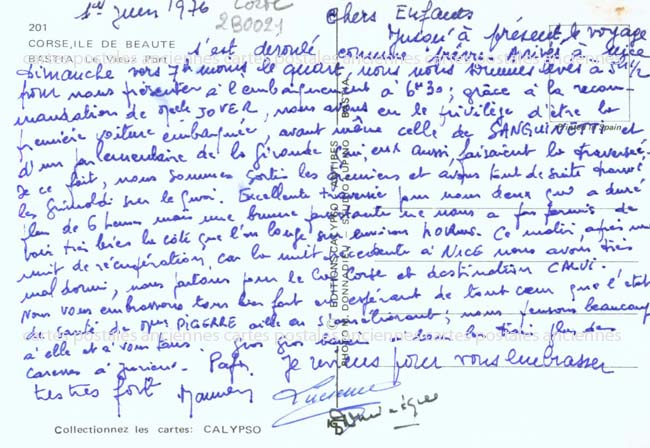 1er Juin 1976
Corse
2B0021
Chers Enfants
201
CORSE, ILE DE BEAUTE
BASTIA Le Vieux Port
Jusqu'à présent, le voyage
s'est déroulé comme prévu. Arrivés à Nice
dimanche vers 7h moins le quart, nous nous sommes levés à 5h1/2
pour nous présenter à l'embarquement à 6h30; grâce à la recom-
mandation de JOVER, nous avons eu le privilège d'être la
première voiture embarquée, avant même celle de SANGUINETTI et
d'un parlementaire de la Gironde qui, eux aussi, faisaient la traversée.
De ce fait, nous sommes sortis les premiers et avons tout de suite trouvé
les Grimaldi sur le quai. Excellente traversée pour nous deux qui a duré
plus de 6 heures mais une brume ne nous a pas permis de
voir très bien la côte que l'on longe sur environ Ce matin, après une
nuit de récupération, car la nuit précédente à NICE nous avons très
mal dormi, nous partons pour le Cap Corse et destination CALVI.
Nous vous embrassons tous bien fort en espérant de tout coeur que l'état
de santé de PIGERRE aille en s'améliorant; nous pensons beaucoup
à elle et à vous tous. Gros gros baisers à tous les trois plus des
caresses à Papy. Je reviens pour vous embrasser
très très fort Mamy
Lucienne
Collectionnez les cartes: CALYPSO
EDITIONS CALYPSO - ANTIBES
PHOTO M. DONNADIEU - STUDIO LUPINO - BASTIA
Printed in Spain
cartes postales anciennes cartes postales anciennes cartes postales anciennes
cartes postales anciennes cartes postales anciennes cartes postales anciennes